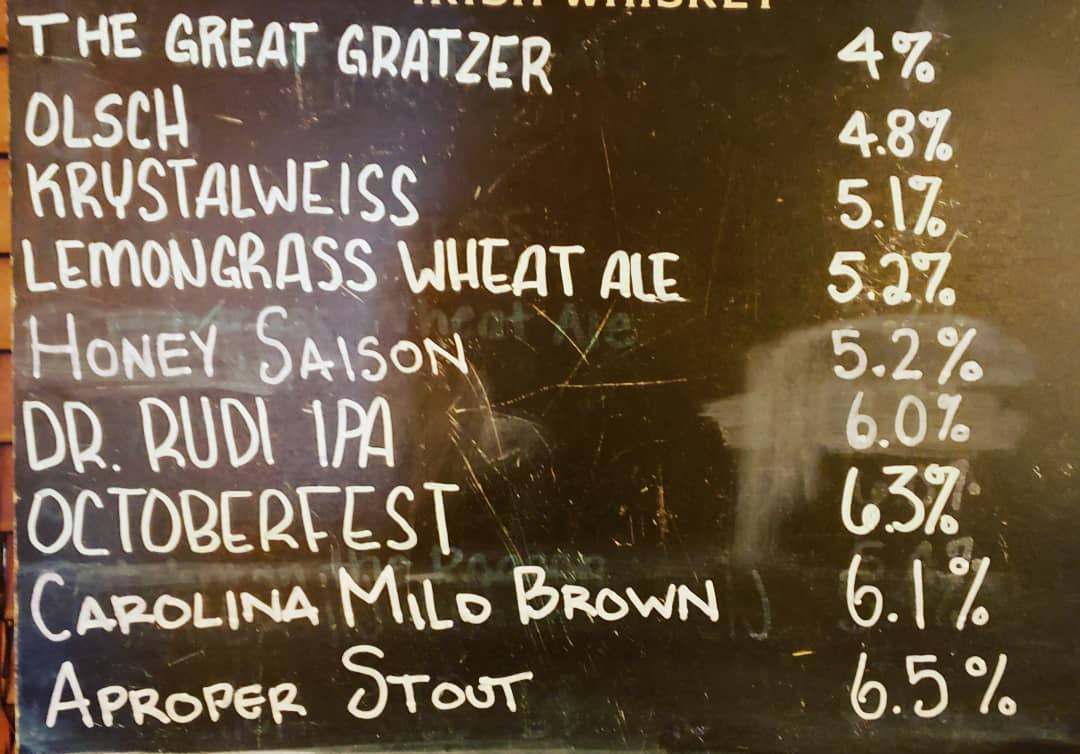 IRISH WHISKEY
THE GREAT GRATZER 4%
OLSCH 4.8%
KRYSTALWEISS 5.1%
LEMONGRASS WHEAT ALE 5.2%
HONEY SAISON 5.2%
DR. RUDI IPA 6.0%
OCTOBERFEST 6.3%
CAROLINA MILD BROWN 6.1%
APROPER STOUT 6.5%